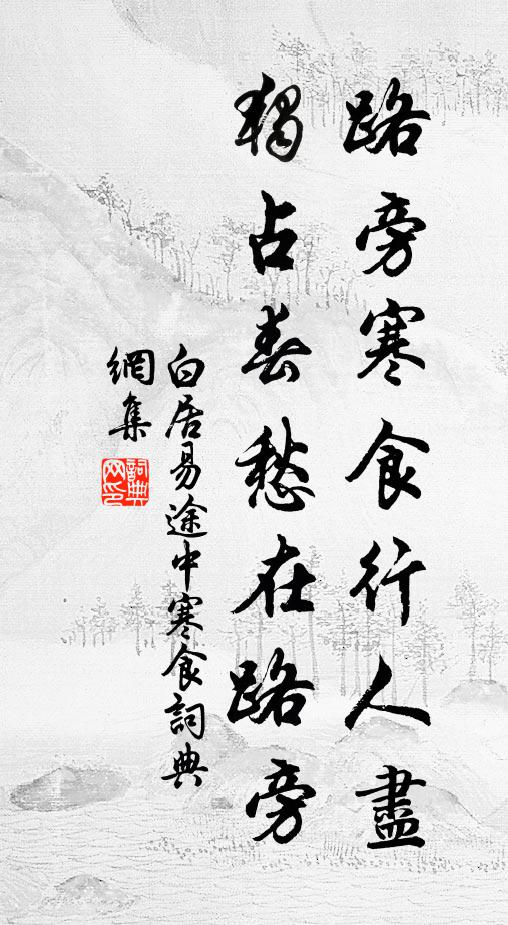 路旁寒食行人盡
獨占春愁在路旁
白居易途中寒食詞典
網集
詞典
网印